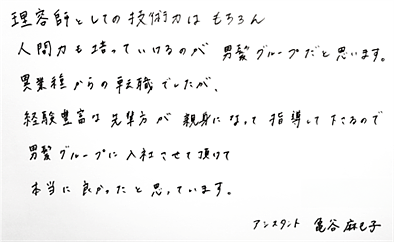 理容師としての技術力はもちろん
人間力も培っていけるのが 男髪グループだと思います。
異業種からの転職でしたが、
経験豊富な先輩方が 親身になって 指導して下さるので
男髪グループに入社させて頂けて
本当に良かったと思っています。
アシスタント 亀谷麻己子